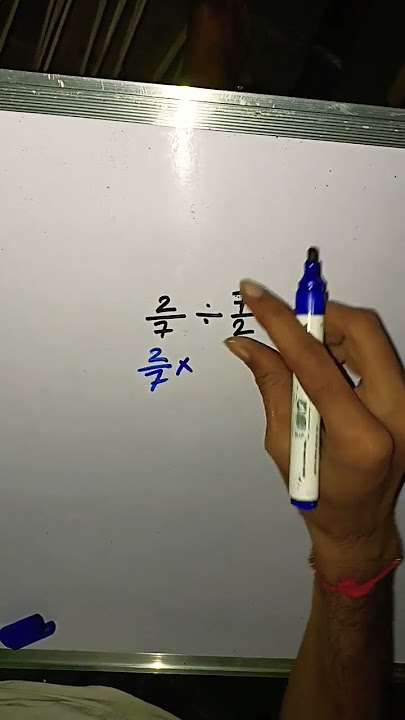 2/7 ÷ 7/2
2/7 ×